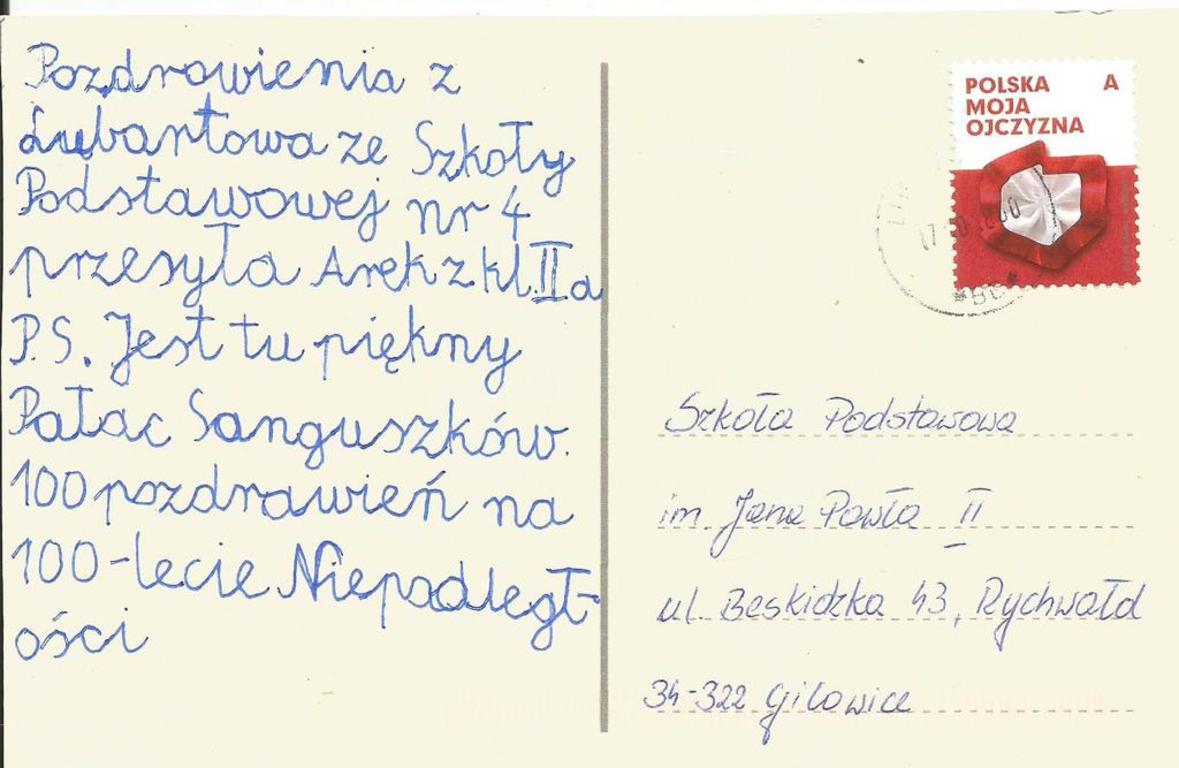 Pozdrowienia z
Lubartowa ze Szkoły
Podstawowej nr 4
przesyła Arek z kl. II a
P.S. Jest tu piękny
Pałac Sanguszków.
100 pozdrawień na
100-lecie Niepodległ-
ości
POLSKA A
MOJA
OJCZYZNA
Szkoła Podstawowa
im. Jana Pawła II
ul. Beskidzka 43, Rychwałd
34-322 Gilowice